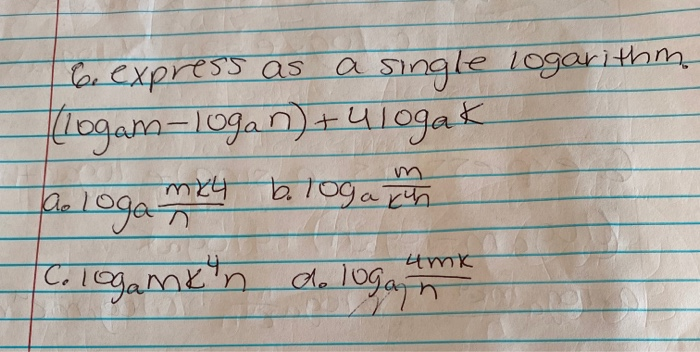 6. express as a single logarithm.
(logam-logan)+4logak
a. loga mk4/n b. loga m/k4n
c. logamk⁴n d. loga 4mk/n